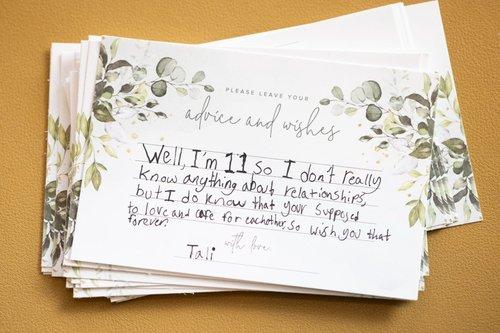 PLEASE LEAVE YOUR
advice and wishes
Well, I'm 11 so I don't really
know anything about relationships,
but I do know that your supposed
to love and care for eachother, so wish you that
forever.
with love
Tali